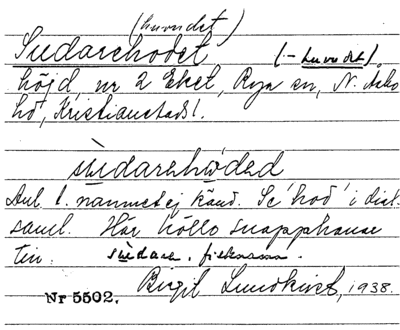 (huvudet)
Siedarehodet (-huvudet)
höjd, nr 2 Eket, Röja sn, N. Åsbo
hd, Kristianstads l.
siedarehǫded
Anl. t. namnet ej känd. Se 'hod' i dial.
saml. Här höllo snapphanar
till. siedare.
Birgit Lundkvist, 1938.
Nr 5502.